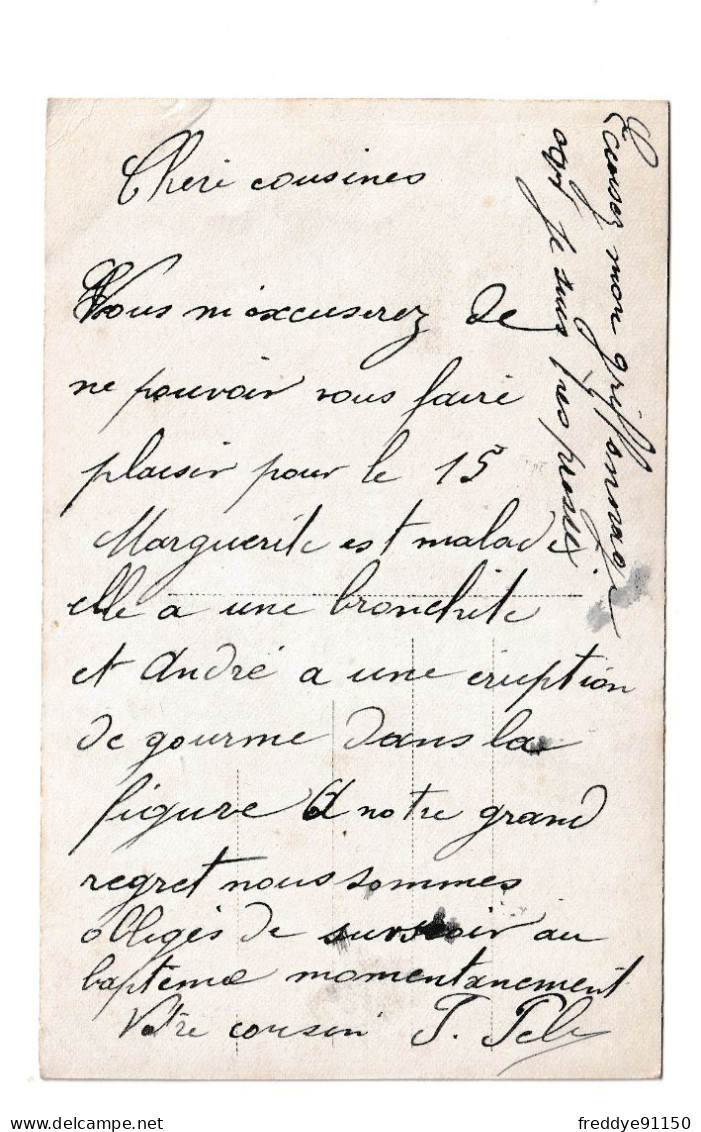 Cheri cousines
Vous m'excuserez de
ne pouvoir vous faire
plaisir pour le 15
Marguerite est malade
elle a une bronchite
et André a une éruption
de gourme dans la
figure A notre grand
regret nous sommes
obligés de surseoir au
baptême momentanement
Votre cousin J.
Excusez mon griffonnage
car je suis très pressé
freddye91150